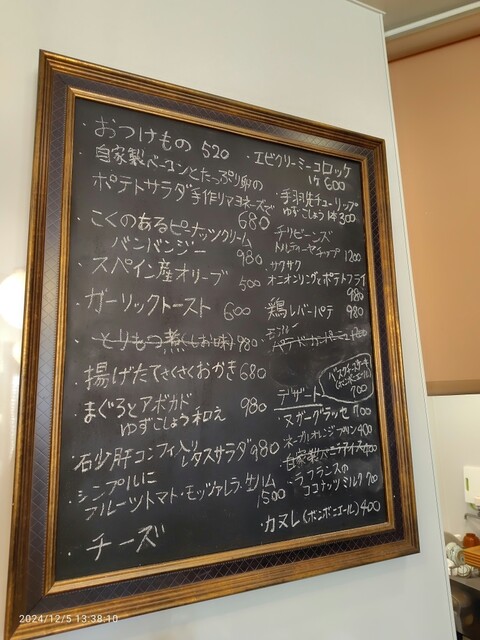 ・おつけもの 520
・自家製ベーコンとたっぷり卵の
ポテトサラダ 手作りマヨネーズで
680
・こくのあるピーナッツクリーム
バンバンジー 980
・スペイン産オリーブ 500
・ガーリックトースト 600
・とりもつ煮(しお味) 980
・揚げたてさくさくおかき 680
・まぐろとアボカド 980
ゆずこしょう和え
・石少肝コンフィ入りレタスサラダ 980
・シンプルに
フルーツトマト・モッツァレラ・生ハム
1500
・チーズ
・エビクリーミーコロッケ
1ケ 600
・手羽先チューリップ
ゆずこしょう 1本 300
チリビーンズ
トルティーヤチップ 1200
・サクサク
オニオンリングとポテトフライ
980
鶏レバーパテ 980
バスクチーズケーキ
(ボンボニエール)
700
デザート
・ヌガーグラッセ 700
・ネーブルオレンジプリン 400
・ラ・フランスの
ココナッツミルク 700
・カヌレ(ボンボニエール) 400
2024/12/5 13:38:10